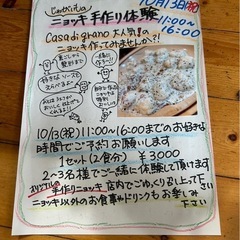 じゃがいもの
ニョッキ 手作り体験
10月13日(祝)
11:00~
16:00
Casa di grano 大人気の
ニョッキ作ってみませんか?!
10/13(祝)11:00~16:00までのお好きな
時間でご予約お願いします
1セット(2食分) ¥3000
2~3名様でご一緒に体験して頂けます
手作りニョッキ 店内でごゆっくり召し上って下さい
ニョッキ以外のお食事やドリンクも お楽しみ
下さい